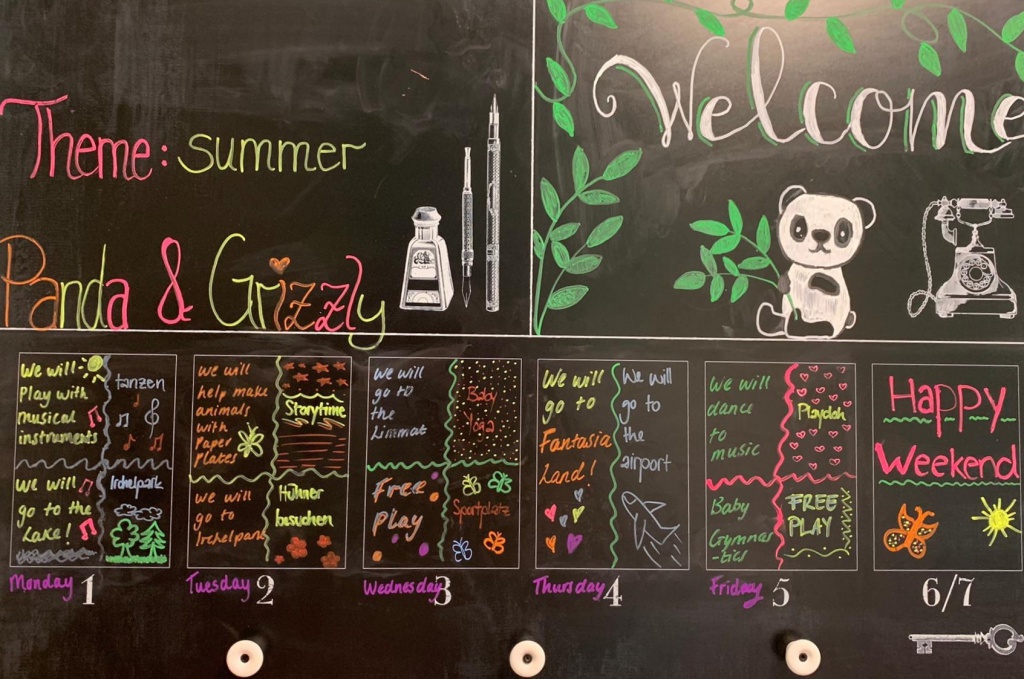 Theme: summer
Panda & Grizzly
Welcome
We will
Play with
musical
instruments
tanzen
We will
go to the
Lake!
Irchelpark
Monday 1
we will
help make
animals
with
Paper
Plates
Storytime
we will
go to
Irchelpark
Hühner
besuchen
Tuesday 2
We will
go to
the
Limmat
Baby
Yoga
Free
Play
Sportplatz
Wednesday 3
We will
go to
Fantasia
Land!
We will
go to
the
airport
Thursday 4
we will
dance
to
music
Playdoh
Baby
Gymnas
-tics
FREE
PLAY
Friday 5
Happy
Weekend
6/7